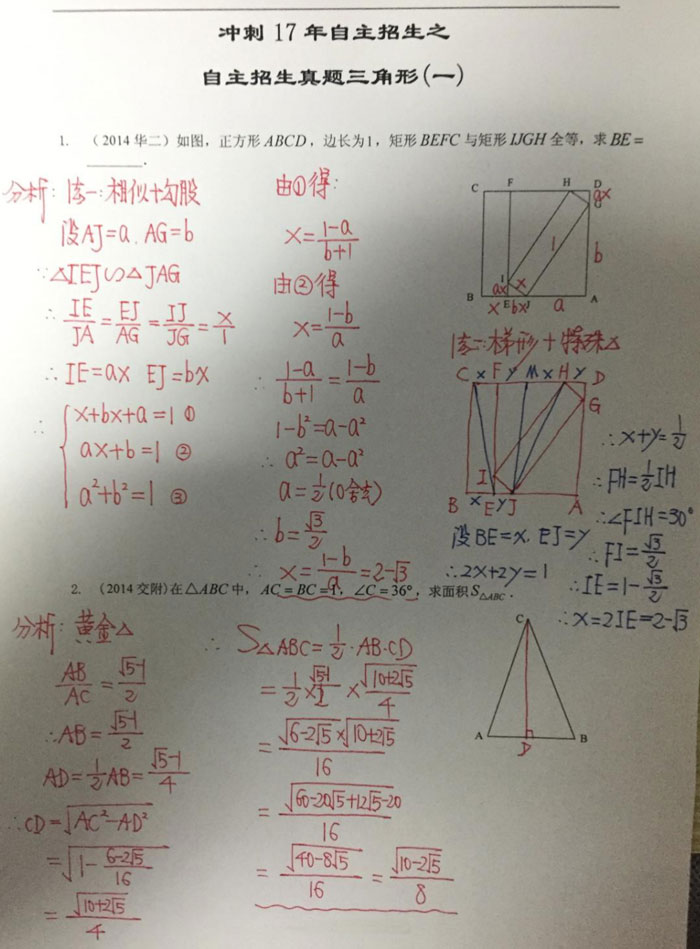 冲刺 17 年自主招生之
自主招生真题三角形(一)
1. （2014 华二）如图，正方形 ABCD，边长为1，矩形 BEFC 与矩形 IJGH 全等，求 BE =
______.
分析: 法一: 相似+勾股
设AJ=a. AG=b
∵△IEJ∽△JAG
∴ IE/JA = EJ/AG = IJ/JG = x/1
∴IE=ax EJ=bx
∴ { x+bx+a=1 ①
ax+b=1 ②
a²+b²=1 ③
由①得:
x=(1-a)/(b+1)
由②得
x=(1-b)/a
∴ (1-a)/(b+1) = (1-b)/a
1-b²=a-a²
∴ a²=a-a²
a=1/2 (0舍去)
∴b=√3/2
∴ x=(1-b)/a=2-√3
C F H D
ax
G
1
b
I x
ax
B E J A
x bx a
法二: 梯形+特殊△
C x F y M x H y D
G
I
B x E y J A
设BE=x, EJ=y
∴2x+2y=1
∴x+y=1/2
∴FH=1/2IH
∴∠FIH=30°
∴FI=√3/2
∴IE=1-√3/2
∴x=2IE=2-√3
2. （2014 交附）在△ABC 中，AC = BC = 1，∠C = 36°，求面积 S△ABC.
分析: 黄金△
AB/AC = (√5-1)/2
∴AB=(√5-1)/2
AD=1/2AB=(√5-1)/4
∴CD=√(AC²-AD²)
=√(1-(6-2√5)/16)
=√(10+2√5)/4
∴ S△ABC=1/2·AB·CD
=1/2×(√5-1)/2×√(10+2√5)/4
=√(6-2√5)×√(10+2√5)/16
=√(60-20√5+12√5-20)/16
=√(40-8√5)/16=√(10-2√5)/8
C
A D B